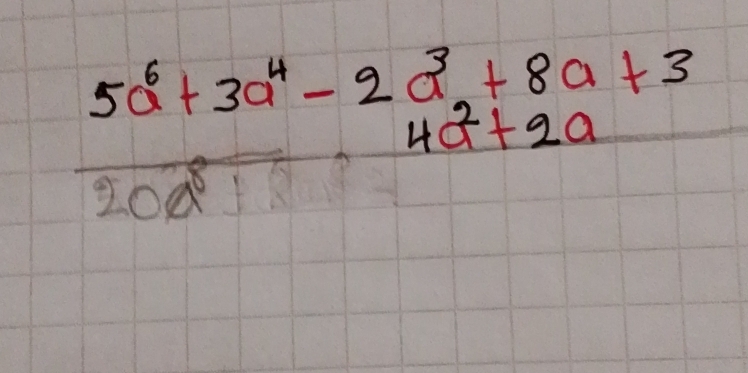 5a⁶ + 3a⁴ - 2a³ + 8a + 3
4a² + 2a
20a⁸ +